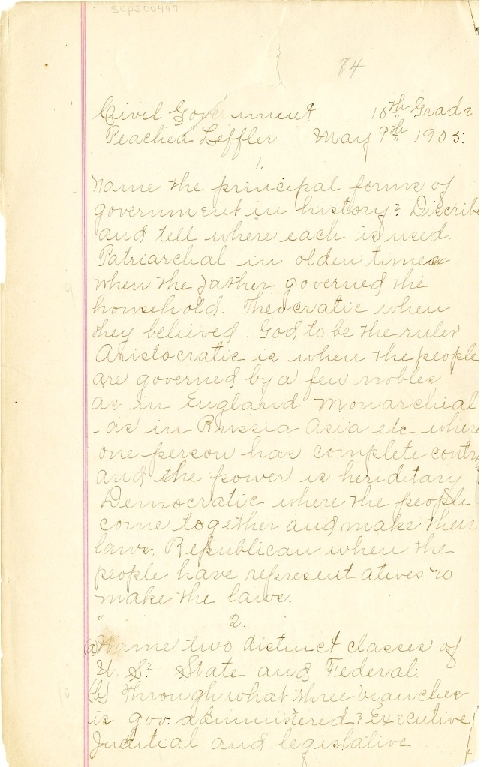 84
Civil Government 10th Grade
Teacher Leffler May 7th 1905.
1.
Name the principal forms of
government in history? Discribe
and tell where each is used.
Patriarchal in olden times
when the father governed the
household. Theocratic when
they believed God to be the ruler
Aristocratic is when the people
are governed by a few nobles
as in England Monarchial
as in Russia Asia etc where
one person has complete contr
and the power is hereditary
Democratic where the people
come together and make their
laws. Republican when the
people have representatives to
make the laws.
2.
(a) Name two distinct classes of
U. S. State and Federal.
(b) Through what three branches
is gov. administered? Executive
Juditial and legislative